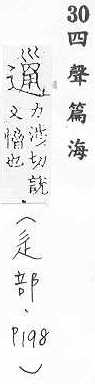 30四聲篇海
力涉切說
文也
(辵部．P198)